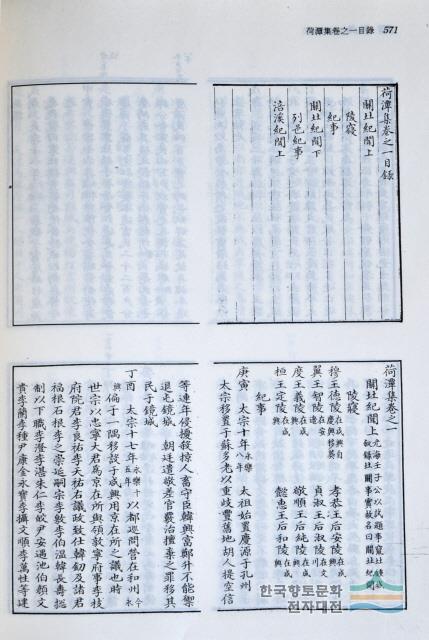 荷潭集卷之一目錄 571
荷潭集卷之一目錄
關北紀聞上
陵寢
紀事
關北紀聞下
列邑紀事
涪溪紀聞上
荷潭集卷之一
關北紀聞上
陵寢
穆王德陵 孝恭王后安陵
翼王智陵 貞淑王后淑陵
度王義陵 敬順王后純陵
桓王定陵 懿惠王后和陵
紀事
庚寅 太宗十年 永樂八年 太祖始置慶源于孔州
太宗移置于蘇多老以重岐豐舊地胡人提空信
等連年侵擾殺掠人畜守臣韓興富鄭升不能禦
退屯鏡城 朝廷遣敬差官覈治擅棄之罪移其
民于鏡城
丁酉 太宗十七年 永樂十五年 以都巡問營在和州
偏于一隅移設于咸興用京在所之議也時
世宗以忠寧大君爲京在所與領敦寧府事李枝
府院君李良祐李天祐右議政致仕韓劒及諸君
福根石根李之崇延嗣宗李敷李伯溫韓長壽摠
制以下職李澄李湛朱仁李皎尹安遇池伯顔文
貴李蘭李種尹康金永寶李攝文順李萬性等建
한국향토문화
전자대전